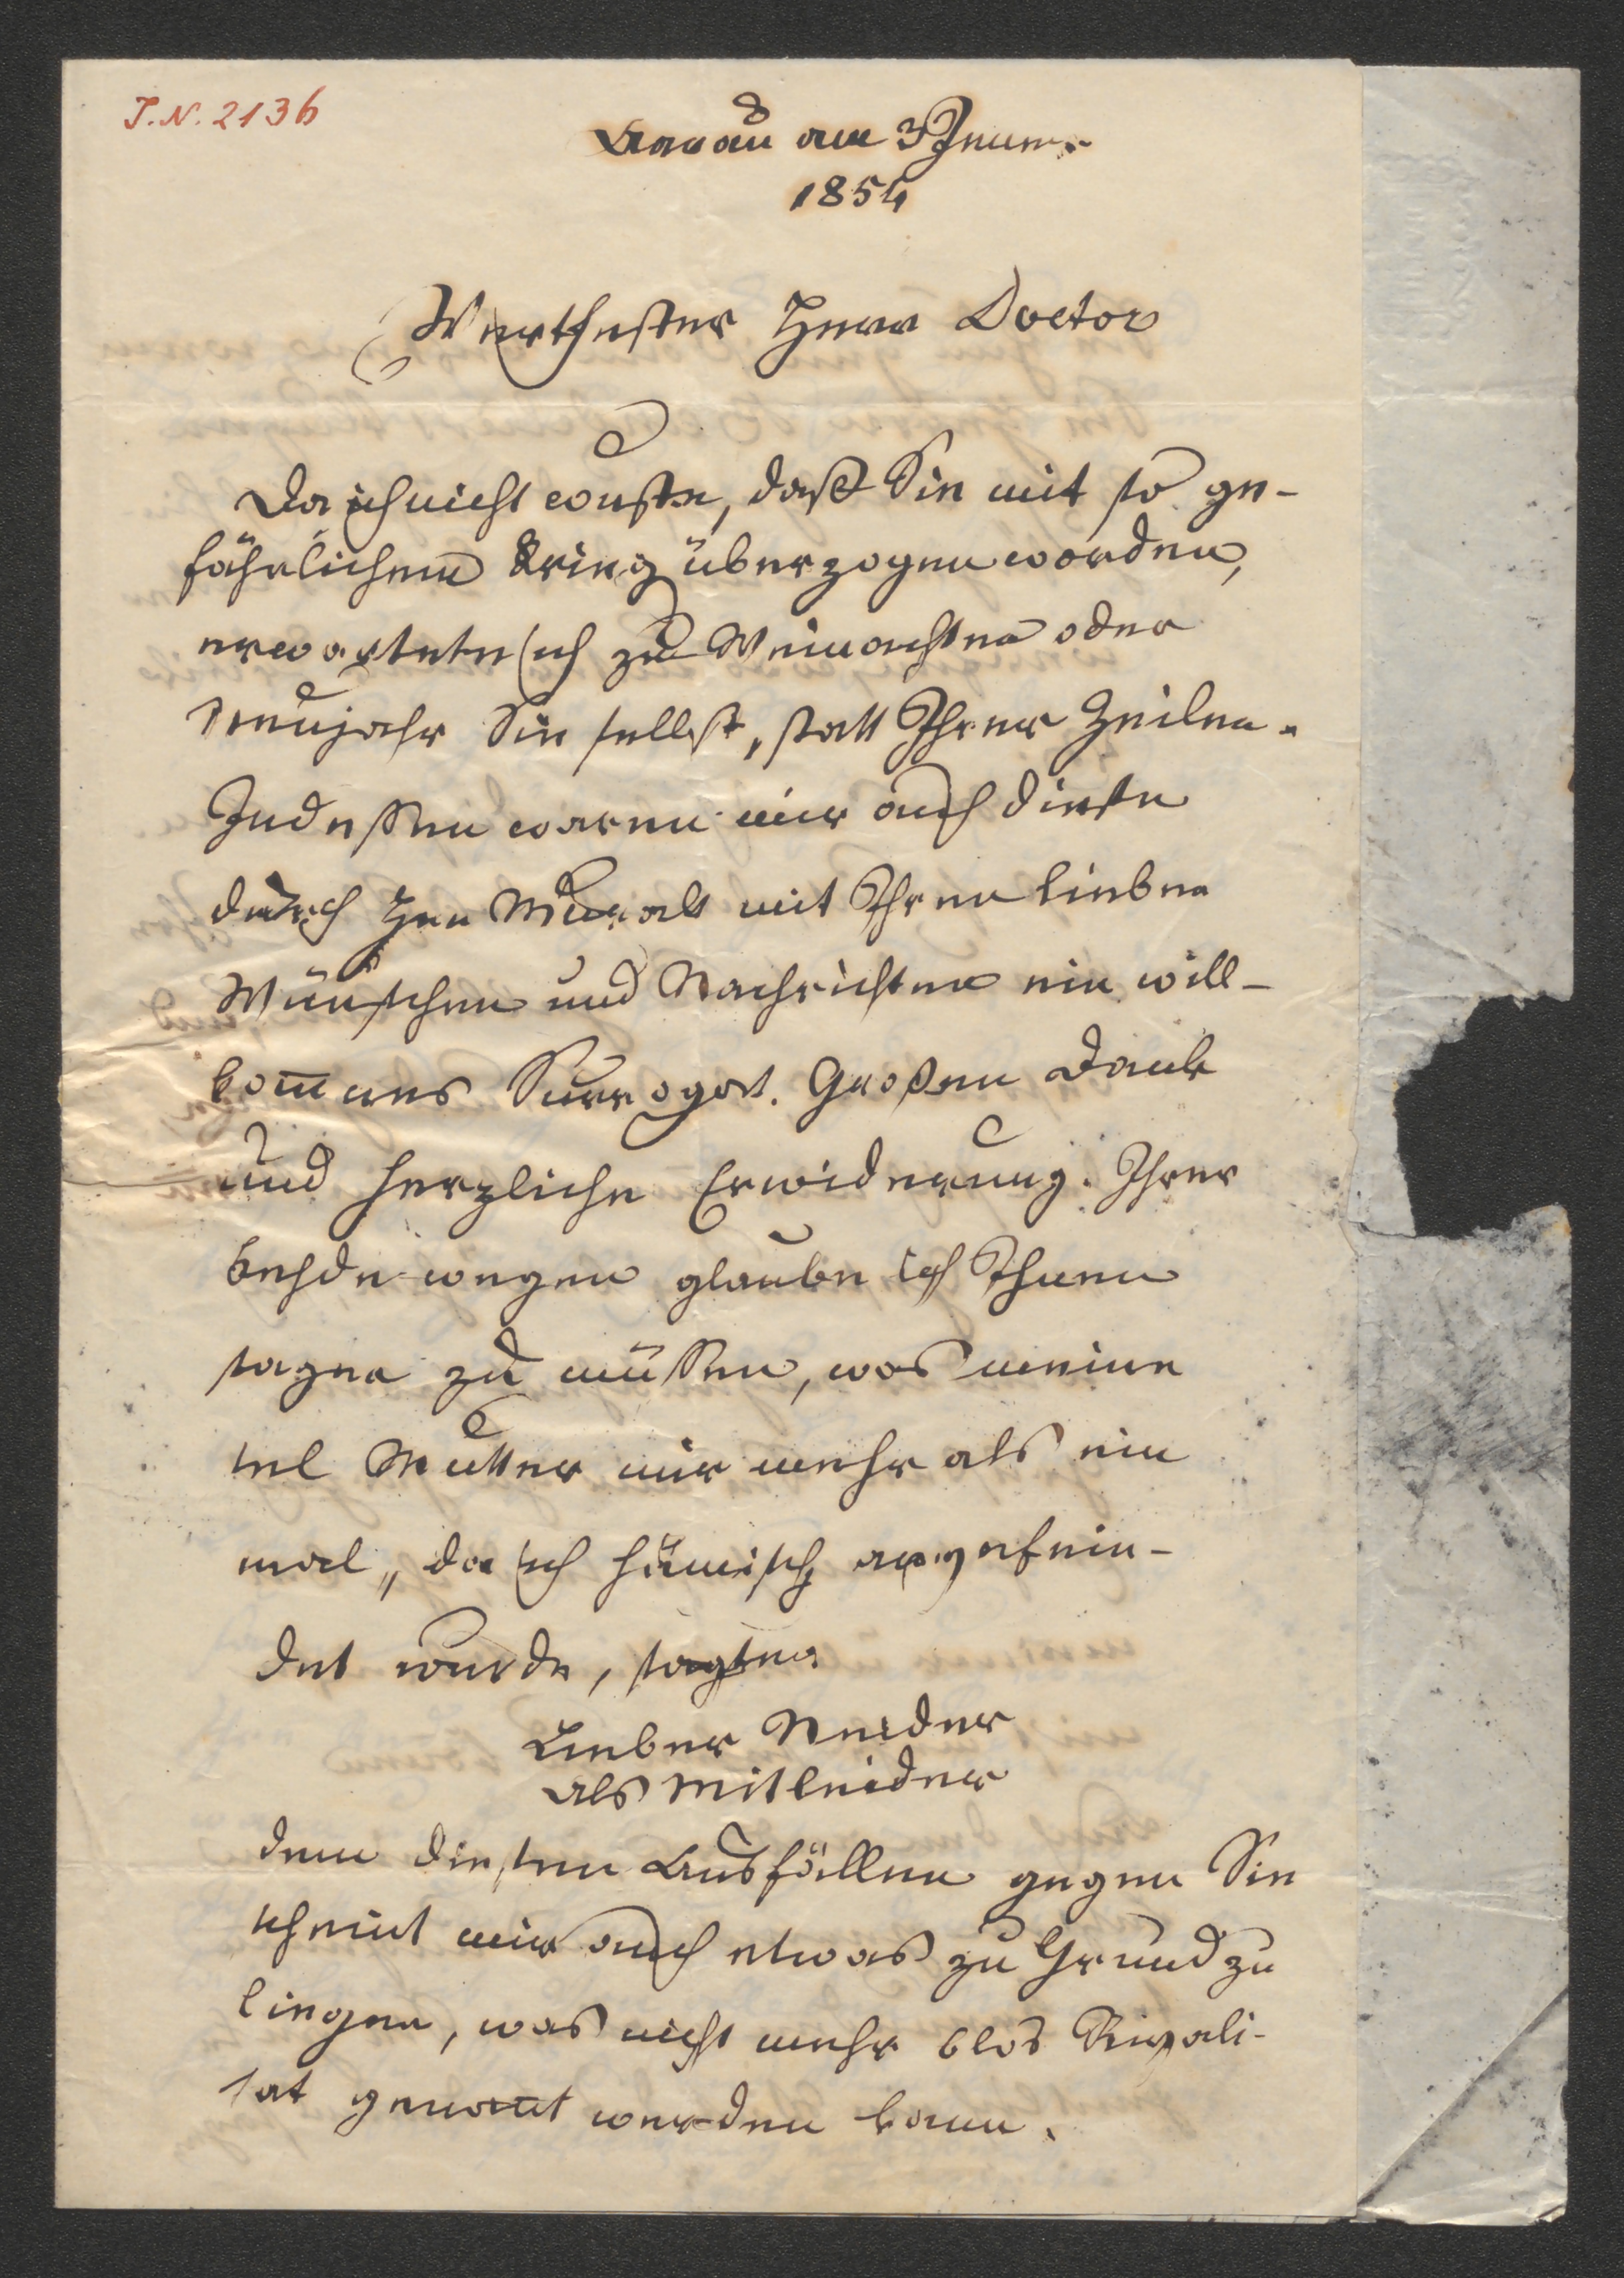 I.N. 2136
Aarau am 3 Jenner
1854
Werthester Herr Doctor
Da ich nicht wuste, daß Sie mit so ge-
fährlichem Krieg überzogen worden,
erwartete ich zu Weinachten oder
Neujahr Sie selbst, statt Ihrer Zeilen.
Indessen waren mir auch diese
durch Hrn Muralt mit Ihren lieben
Wünschen und Nachrichten ein will-
kom̅nes Surrogat. Großen Dank
und herzliche Erwiderung. Ihrer
Fehde wegen glaube ich Ihnen
sagen zu müssen, was meine
sel Mutter mir mehr als ein
mal, da ich hämisch angefein-
det wurde, sagte:
Lieber Neider
als Mitleider
denn diesen Ausfällen gegen Sie
scheint mir auch etwas zu Grund zu
liegen, was nicht mehr blos Rivali-
tat genan̅t werden kann.